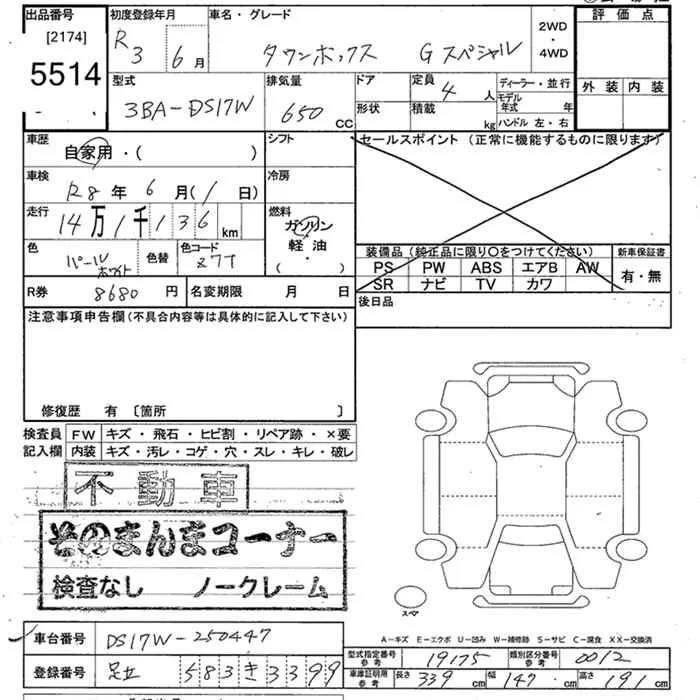 出品番号
[2174]
5514
初度登録年月
R3 6月
車名・グレード
タウンボックス Gスペシャル
2WD
・
4WD
評価点
外装 内装
型式
3BA-DS17W
排気量
650 CC
ドア
形状
定員 4 人
積載 kg
ディーラー・並行
モデル年式 年
ハンドル 左・右
車歴
自家用・( )
シフト
セールスポイント (正常に機能するものに限ります)
車検
R8年 6月 (1日)
冷房
走行
14万1千136 km
燃料
ガソリン
軽油・
( )
色
パールホワイト
色替
色コード
Z7T
装備品 (純正品に限り○をつけてください)
PS PW ABS エアB AW
SR ナビ TV カワ
新車保証書
有・無
R券 8680 円
名変期限 月 日
後日品
注意事項申告欄 (不具合内容等は具体的に記入して下さい)
修復歴 有 〔箇所 〕
検査員記入欄
FW キズ・飛石・ヒビ割・リペア跡・×要
内装 キズ・汚レ・コゲ・穴・スレ・キレ・破レ
不動車
そのまんまコーナー
検査なし ノークレーム
スペア
A-キズ E-エクボ U-凹み W-補修跡 S-サビ C-腐食 XX-交換済
車台番号 DS17W-250447
登録番号 足立 583 き 3399
型式指定番号 参考 19175
類別区分番号 参考 0012
車庫証明用 参考 長さ 339 cm 幅 147 cm 高さ 191 cm